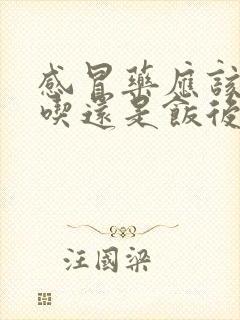 感冒藥應該
喫還是飯後
汪國梁